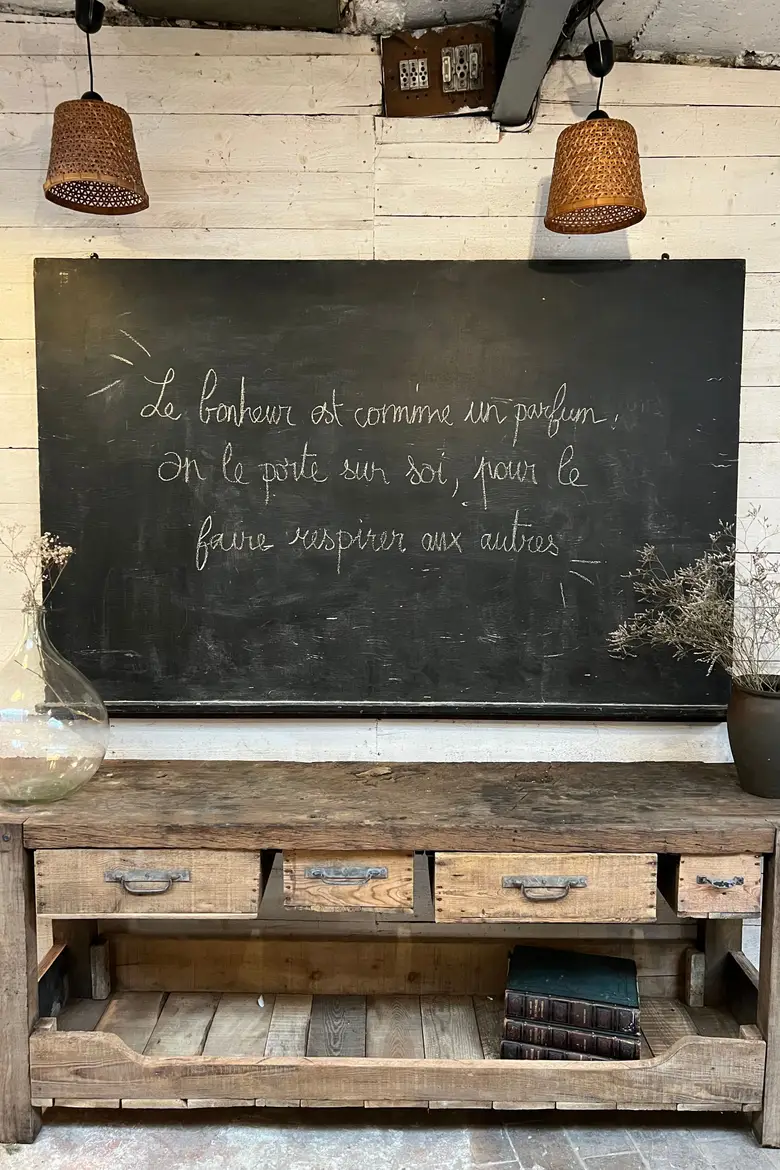 Le bonheur est comme un parfum,
on le porte sur soi, pour le
faire respirer aux autres